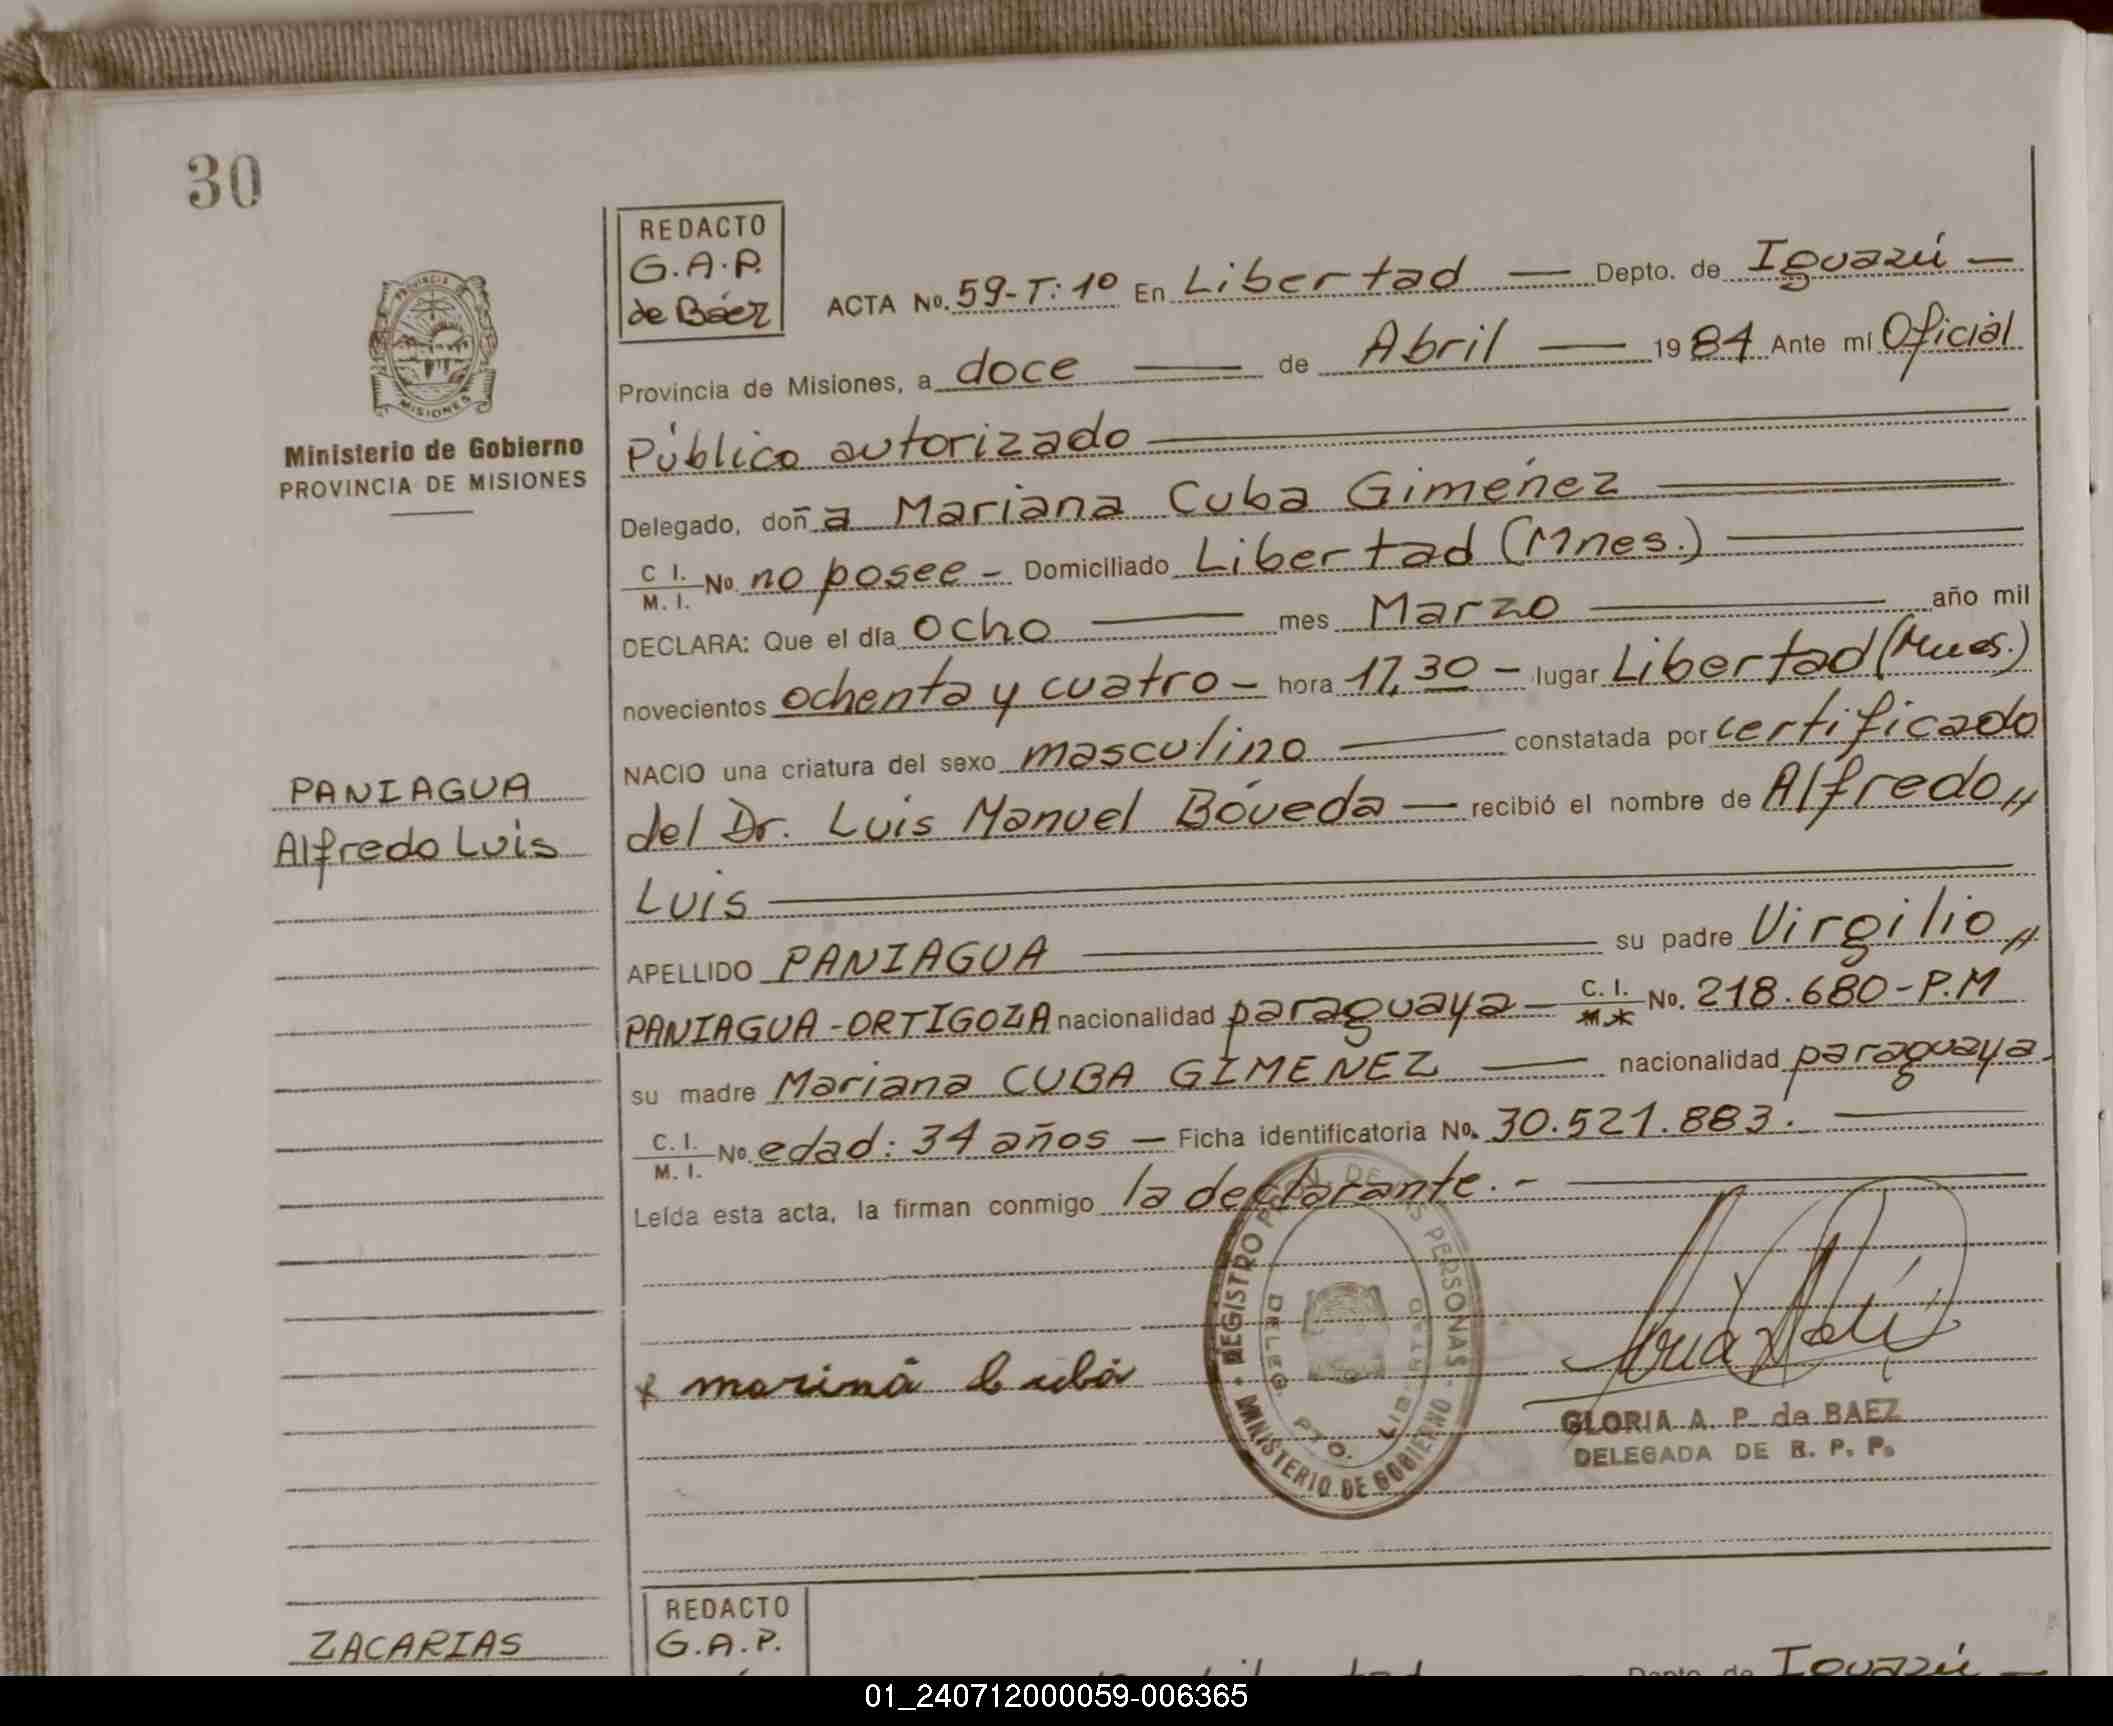 30
REDACTO
G.A.P.
de Báez
PROVINCIA
MISIONES
Ministerio de Gobierno
PROVINCIA DE MISIONES
ACTA No. 59-T: 1º En Libertad — Depto. de Iguazú —
Provincia de Misiones, a doce — de Abril — 1984 Ante mí Oficial
Público autorizado
Delegado, doña Mariana Cuba Giménez
C I. / M. I. No. no posee - Domiciliado Libertad (Mnes.)
DECLARA: Que el día ocho — mes Marzo — año mil
novecientos ochenta y cuatro - hora 17,30 - lugar Libertad (Mnes.)
NACIO una criatura del sexo masculino — constatada por certificado
del Dr. Luis Manuel Bóveda — recibió el nombre de Alfredo //
Luis
APELLIDO PANIAGUA — su padre Virgilio //
PANIAGUA-ORTIGOZA nacionalidad paraguaya - C. I. No. 218.680-P.M
su madre Mariana CUBA GIMENEZ — nacionalidad paraguaya
C. I. / M. I. No. edad: 34 años - Ficha identificatoria No. 30.521.883.
Leída esta acta, la firman conmigo la declarante. -
PANIAGUA
Alfredo Luis
REGISTRO DE PERSONAS - MINISTERIO DE GOBIERNO
DELEG. PTO. LIBERTAD
GLORIA A. P. de BAEZ
DELEGADA DE R. P. P.
ZACARIAS
REDACTO
G.A.P.
Depto. de Iguazú —
01_240712000059-006365